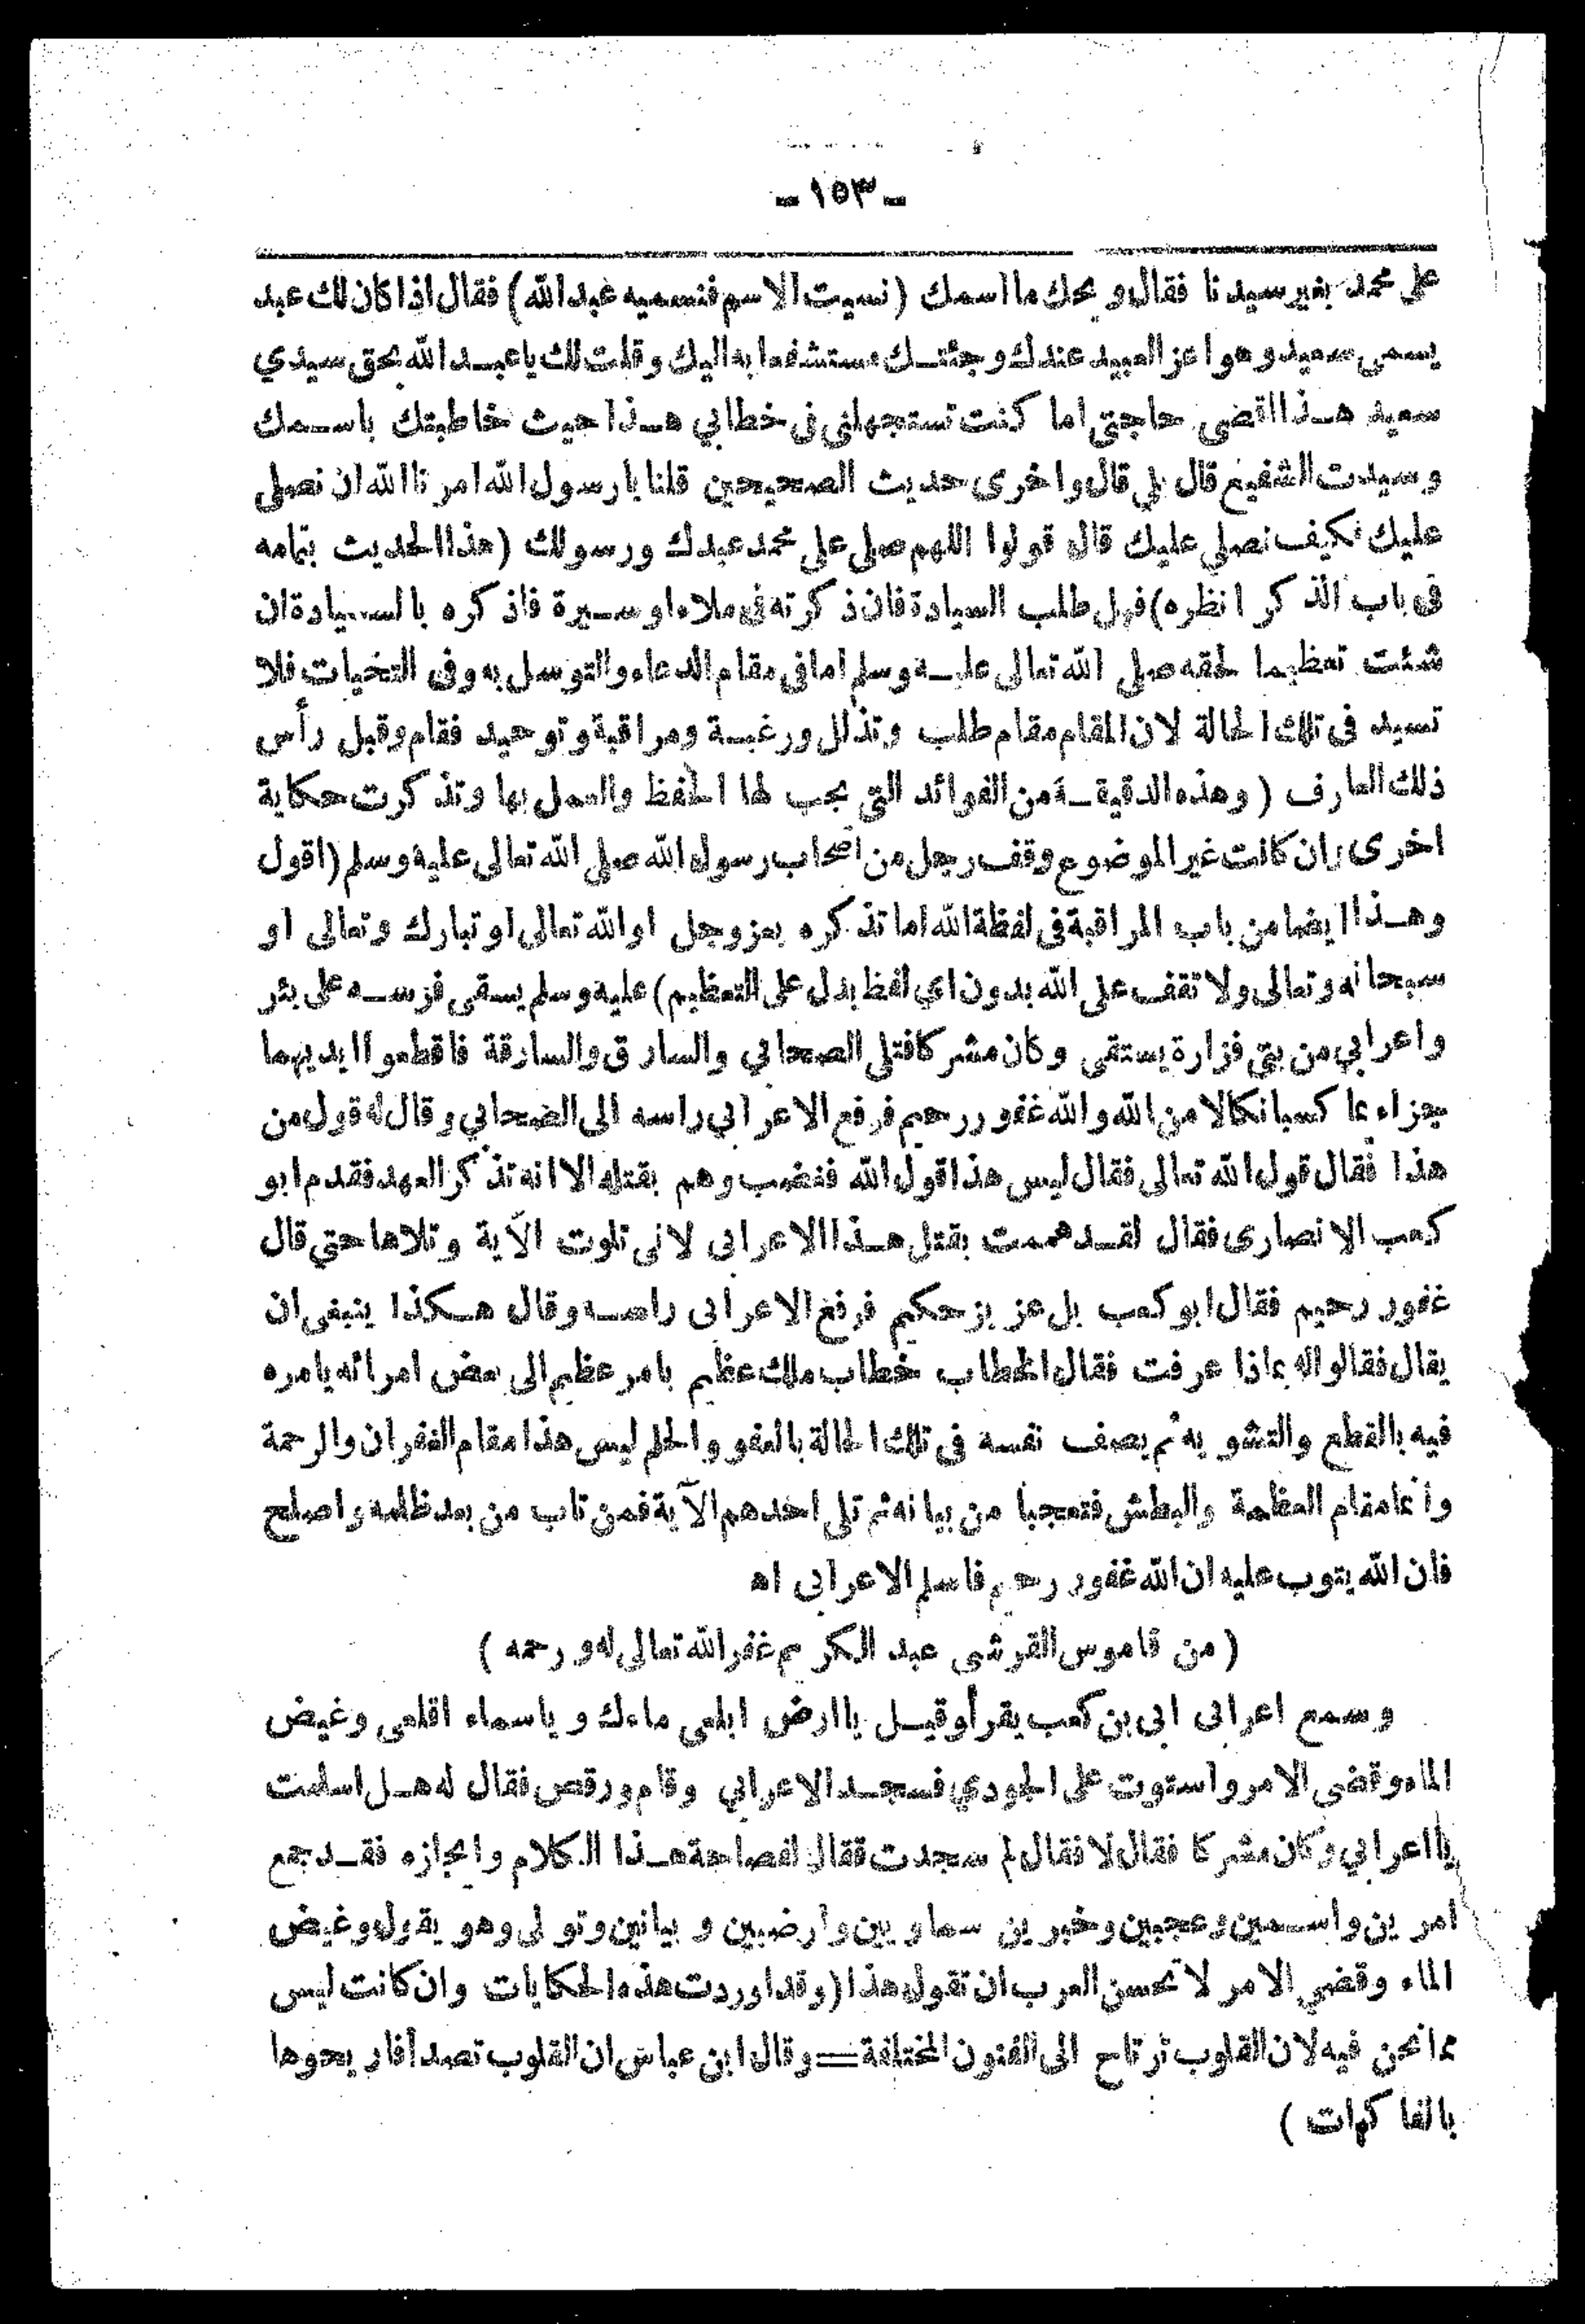 ـ ١٥٣ ـ
على محمد بغير سيدنا فقال ويحك ما اسمك (نسيت الاسم فنسميه عبد الله) فقال اذا كان لك عبد
يسمى سعيد وهو اعز العبيد عندك وجئتك مستشفعا به اليك وقلت لك ياعبد الله بحق سيدي
سعيد هذا اقضى حاجتي اما كنت تستجهلنى فى خطابي هذا حيث خاطبتك باسمك
وسيدت الشفيع قال بلى قال واخرى حديث الصحيحين قلنا يا رسول الله امرنا الله ان نصلى
عليك فكيف نصلي عليك قال قولوا اللهم صلى على محمد عبدك ورسولك (هذا الحديث بتمامه
فى باب الذكر انظره) فهل طلب السيادة فان ذكرته فى ملاء او سيرة فاذكره بالسيادة ان
شئت تعظيما لحقه صلى الله تعالى عليه وسلم اما فى مقام الدعاء والتوسل به وفى التحيات فلا
تسيد فى تلك الحالة لان المقام مقام طلب وتذلل ورغبة ومراقبة وتوحيد فقام وقبل رأس
ذلك العارف (وهذه الدقيقة من الفوائد التى يجب لها الحفظ والعمل بها وتذكرت حكاية
اخرى وان كانت غير الموضوع وقف رجل من اصحاب رسول الله صلى الله تعالى عليه وسلم (اقول
وهذا ايضا من باب المراقبة فى لفظة الله اما تذكره بعز وجل او الله تعالى او تبارك وتعالى او
سبحانه وتعالى ولا تقف على الله بدون اي لفظ يدل على التعظيم) عليه وسلم يسقى فرسه على بئر
واعرابي من بنى فزارة يستقى وكان مشركا فتلى الصحابي والسارق والسارقة فاقطعوا ايديهما
جزاء بما كسبا نكالا من الله والله غفور رحيم فرفع الاعرابي راسه الى الصحابي وقال له قول من
هذا فقال قول الله تعالى فقال ليس هذا قول الله فغضب وهم بقتله الا انه تذكر العهد فقدم ابو
كعب الانصارى فقال لقد هممت بقتل هذا الاعرابى لانى تلوت الآية وتلاها حتي قال
غفور رحيم فقال ابو كعب بل عزيز حكيم فرفع الاعرابى راسه وقال هكذا ينبغى ان
يقال فقالوا له بماذا عرفت فقال الخطاب خطاب ملك عظيم بامر عظيم الى بعض امرائه يامره
فيه بالقطع والتشويه ثم يصف نفسه فى تلك الحالة بالعفو والحلم ليس هذا مقام الغفران والرحمة
وانما مقام العظمة والبطش فتعجبا من بيانه ثم تلى احدهم الآية فمن تاب من بعد ظلمه واصلح
فان الله يتوب عليه ان الله غفور رحيم فاسلم الاعرابى اهـ
(من قاموس القرشى عبد الكريم غفر الله تعالى له ورحمه)
وسمع اعرابى ابى بن كعب يقرأ وقيل ياارض ابلعى ماءك وياسماء اقلعى وغيض
الماء وقضى الامر واستوت على الجودي فسجد الاعرابي وقام ورقص فقال له هل اسلمت
يااعرابي وكان مشركا فقال لا فقال لم سجدت فقال لفصاحة هذا الكلام وايجازه فقد جمع
امرين واسمين وعجبين وخبرين سماويين وارضيين وبيانين وتولى وهو يقول وغيض
الماء وقضي الامر لا تحسن العرب ان تقول هذا (وقد اوردت هذه الحكايات وان كانت ليس
مما نحن فيه لان القلوب ترتاح الى الفنون المختلفة = وقال ابن عباس ان القلوب تصدأ فاريحوها
بالفاكهات)